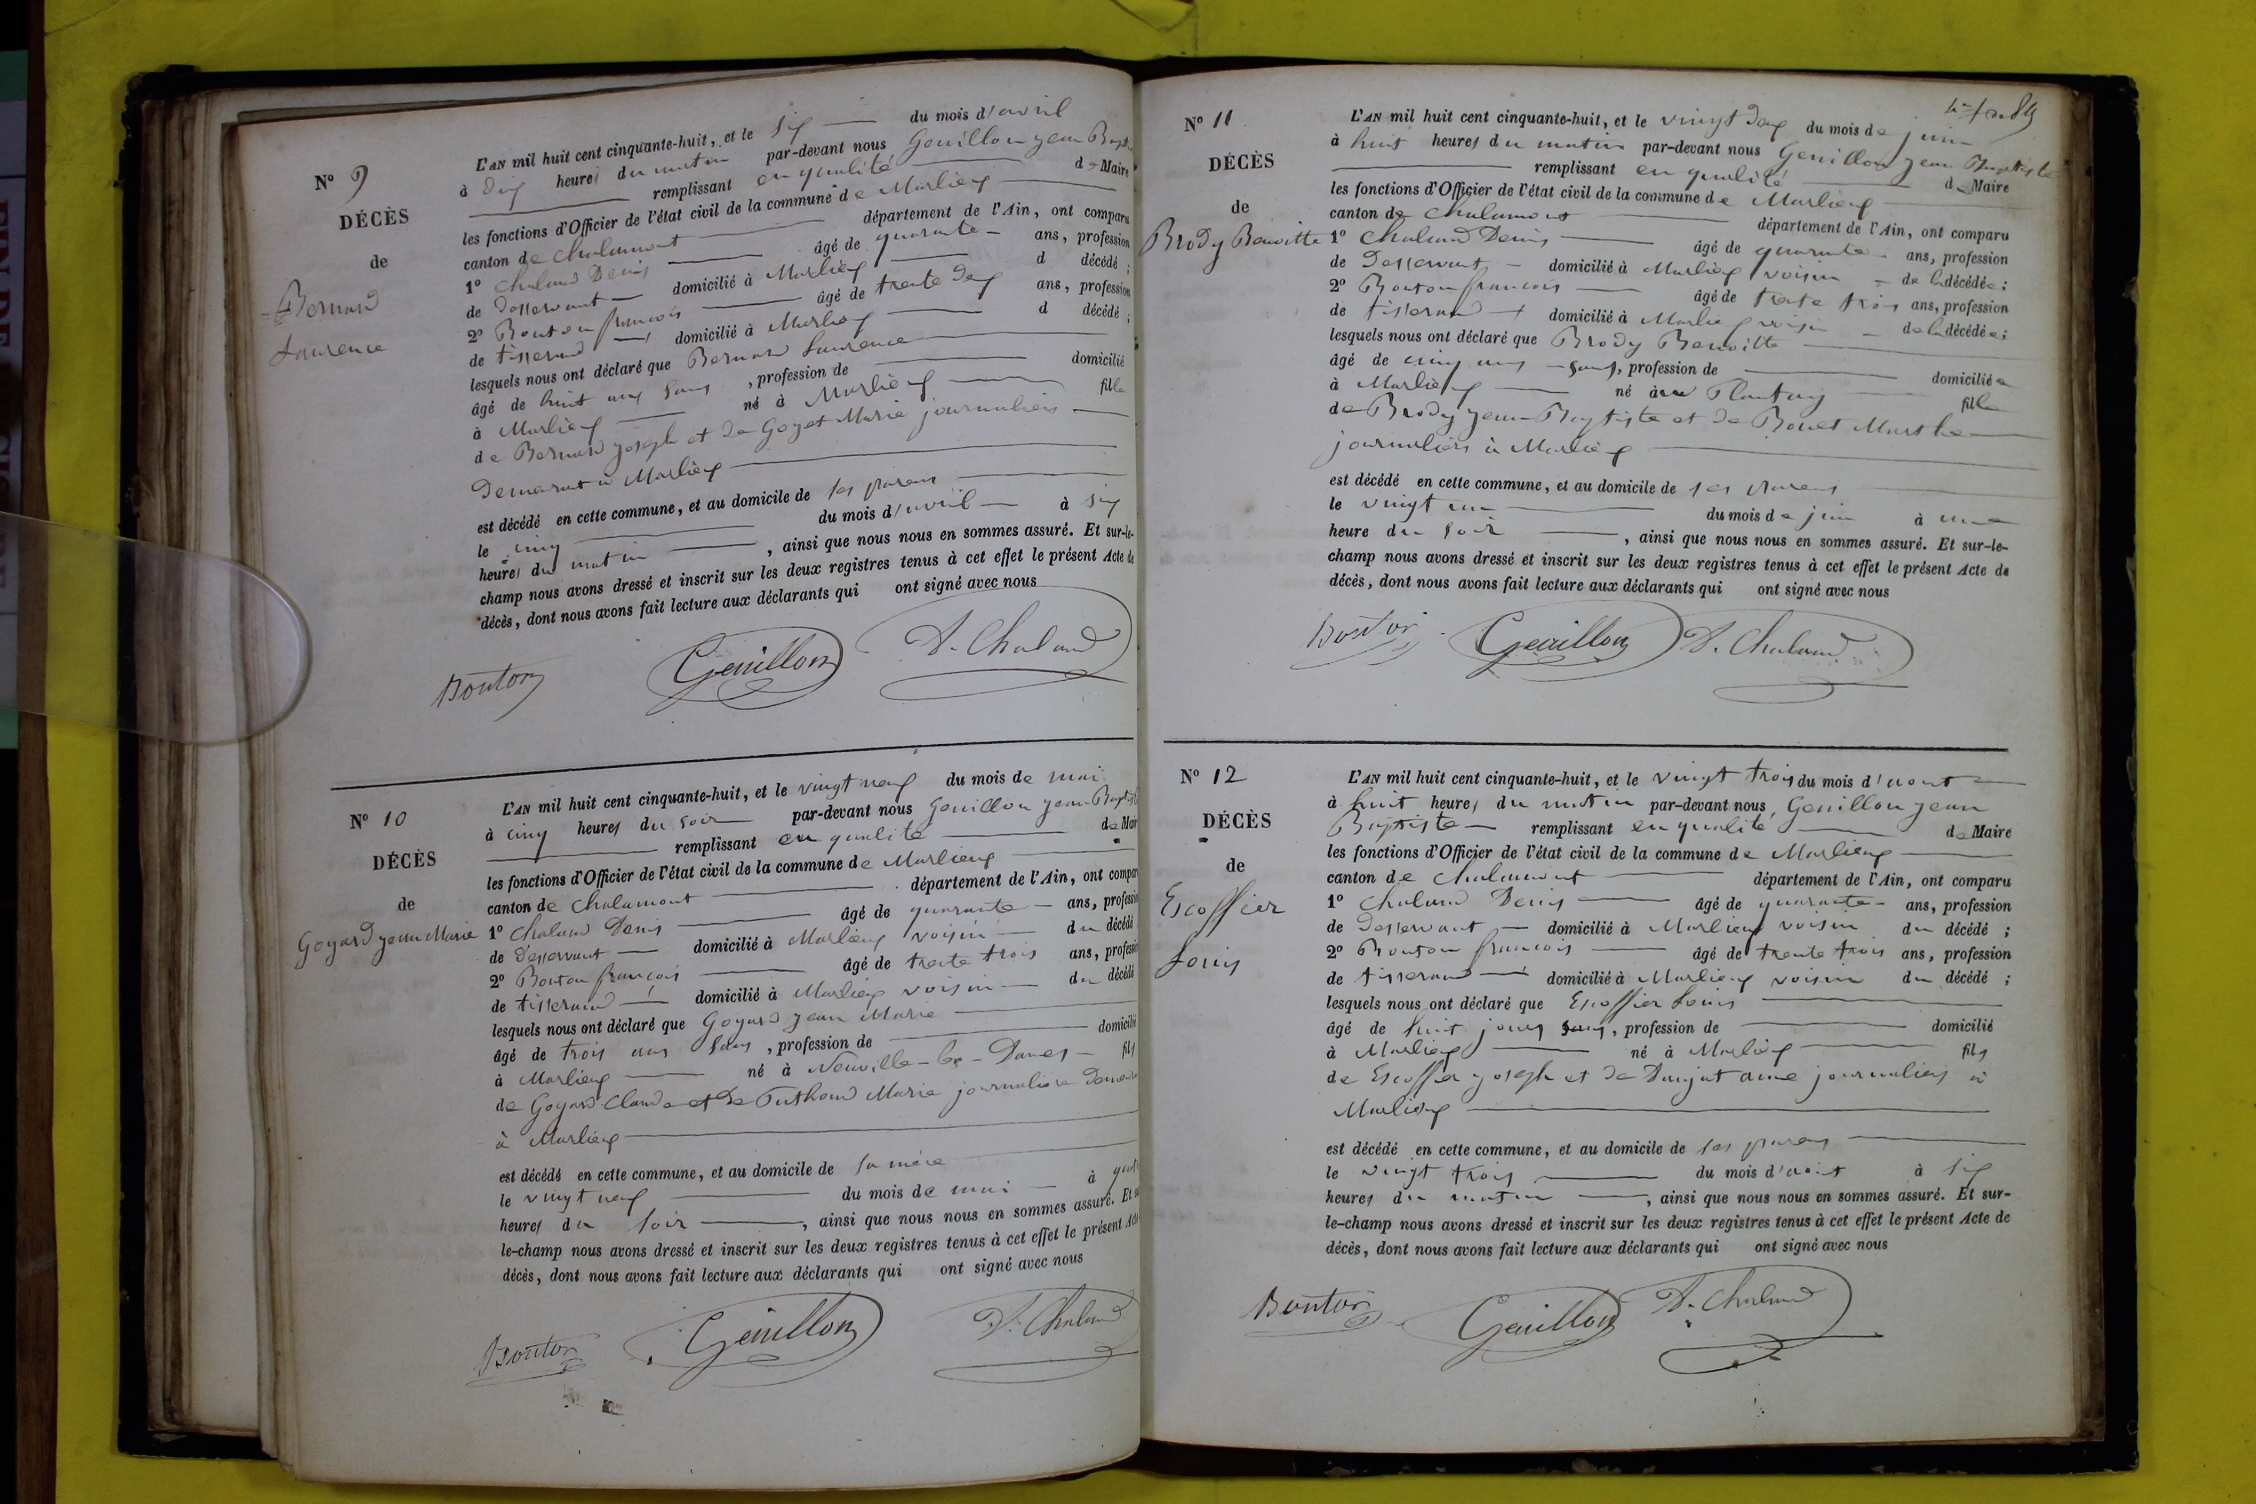 N° 9
DÉCÈS
de
Bernard
Laurence
L'AN mil huit cent cinquante-huit, et le six du mois d'avril
à dix heures du matin par-devant nous Genillon jean Bapt
remplissant en qualité de Maire
les fonctions d'Officier de l'état civil de la commune de Marlieux
canton de Chalamont département de l'Ain, ont comparu
1° Chaland Denis âgé de quarante ans, profession
de desservant domicilié à Marlieux d décédé ;
2° Bouton françois âgé de trente deux ans, profession
de tisserand domicilié à Marlieux d décédé ;
lesquels nous ont déclaré que Bernard Laurence
âgé de huit ans sans, profession de domicilié
à Marlieux né à Marlieux fille
de Bernard joseph et de Goyet Marie journaliers
demeurant à Marlieux
est décédé en cette commune, et au domicile de ses parens
le cinq du mois d'avril à six
heures du matin, ainsi que nous nous en sommes assuré. Et sur-le-
champ nous avons dressé et inscrit sur les deux registres tenus à cet effet le présent Acte de
décès, dont nous avons fait lecture aux déclarants qui ont signé avec nous
Bouton Genillon D. Chaland
N° 10
DÉCÈS
de
Goyard jean Marie
L'AN mil huit cent cinquante-huit, et le vingt neuf du mois de mai
à cinq heures du soir par-devant nous Genillon jean Baptist
remplissant en qualité de Mair
les fonctions d'Officier de l'état civil de la commune de Marlieux
canton de Chalamont département de l'Ain, ont compar
1° Chaland Denis âgé de quarante ans, profession
de desservant domicilié à Marlieux voisin du décédé
2° Bouton françois âgé de trente trois ans, profession
de tisserand domicilié à Marlieux voisin du décédé
lesquels nous ont déclaré que Goyard jean Marie
âgé de trois ans sans, profession de domicilié
à Marlieux né à Neuville-les-Dames fils
de Goyard Claude et de Marie journaliere
à Marlieux
est décédé en cette commune, et au domicile de sa mère
le vingt neuf du mois de mai à
heures du soir, ainsi que nous nous en sommes assuré. Et
le-champ nous avons dressé et inscrit sur les deux registres tenus à cet effet le présent Acte
décès, dont nous avons fait lecture aux déclarants qui ont signé avec nous
Bouton Genillon D. Chaland
N° 11
DÉCÈS
de
Brody Benoitte
L'AN mil huit cent cinquante-huit, et le vingt deux du mois de juin
à huit heures du matin par-devant nous Genillon jean Baptiste
remplissant en qualité de Maire
les fonctions d'Officier de l'état civil de la commune de Marlieux
canton de Chalamont département de l'Ain, ont comparu
1° Chaland Denis âgé de quarante ans, profession
de desservant domicilié à Marlieux voisin de la décédée ;
2° Bouton francois âgé de trente trois ans, profession
de tisserand domicilié à Marlieux voisin de la décédée ;
lesquels nous ont déclaré que Brody Benoitte
âgé de cinq ans sans, profession de domiciliée
à Marlieux né au Plantay fille
de Brody jean-Baptiste et de Bouet Marthe
journaliers à Marlieux
est décédé en cette commune, et au domicile de ses parens
le vingt un du mois de juin à une
heure du soir, ainsi que nous nous en sommes assuré. Et sur-le-
champ nous avons dressé et inscrit sur les deux registres tenus à cet effet le présent Acte de
décès, dont nous avons fait lecture aux déclarants qui ont signé avec nous
Bouton Genillon D. Chaland
N° 12
DÉCÈS
de
Escoffier
Louis
L'AN mil huit cent cinquante-huit, et le vingt trois du mois d'aout
à huit heures du matin par-devant nous Genillon jean
Baptiste remplissant en qualité de Maire
les fonctions d'Officier de l'état civil de la commune de Marlieux
canton de Chalamont département de l'Ain, ont comparu
1° Chaland Denis âgé de quarante ans, profession
de desservant domicilié à Marlieux voisin du décédé ;
2° Bouton francois âgé de trente trois ans, profession
de tisserand domicilié à Marlieux voisin du décédé ;
lesquels nous ont déclaré que Escoffier Louis
âgé de huit jours sans, profession de domicilié
à Marlieux né à Marlieux fils
de Escoffier joseph et de Danjat anne journaliers à
Marlieux
est décédé en cette commune, et au domicile de ses parens
le vingt trois du mois d'aout à six
heures du matin, ainsi que nous nous en sommes assuré. Et sur-
le-champ nous avons dressé et inscrit sur les deux registres tenus à cet effet le présent Acte de
décès, dont nous avons fait lecture aux déclarants qui ont signé avec nous
Bouton Genillon D. Chaland